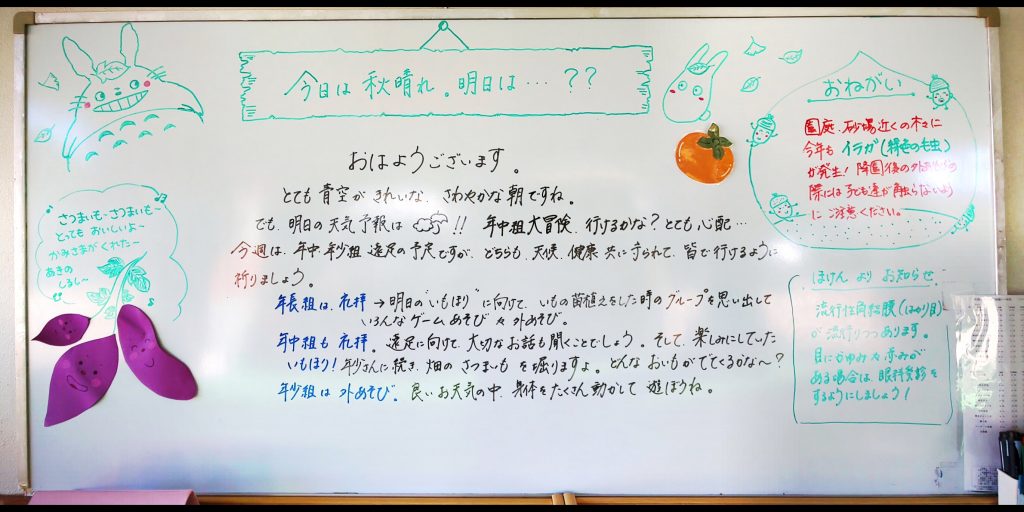 今日は 秋晴れ。明日は…??
おはようございます。
とても 青空が きれいな、さわやかな 朝ですね。
でも、明日の天気予報は !! 年中組大冒険、行けるかな?とても心配…
今週は、年中・年少組 遠足の予定ですが、どちらも、天候、健康 共に守られて、皆で行けるように
祈りましょう。
年長組は、礼拝 → 明日の"いもほり"に向けて、いもの苗植えをした時のグループを思い出して
いろんなゲームあそび や 外あそび。
年中組も 礼拝。遠足に向けて、大切なお話も聞くことでしょう。そして、楽しみにしていた
いもほり!年少さんに続き、畑の さつまいも を掘りますよ。どんな おいもが でてくるかな〜?
年少組は 外あそび。良いお天気の中、身体をたくさん動かして 遊ぼうね。
さつまいも〜さつまいも〜
とっても おいしいよ〜
かみさまが くれた〜
あきの
しるし〜
おねがい
園庭、砂場近くの木々に
今年も イラガ(緑色の毛虫)
が発生! 降園後の外あそびの
際には 子ども達が触らないよう
に ご注意ください。
ほけん より お知らせ
流行性角結膜(はやり目)
が 流行りつつあります。
目にかゆみや 赤みが
ある場合は、眼科受診を
するようにしましょう!